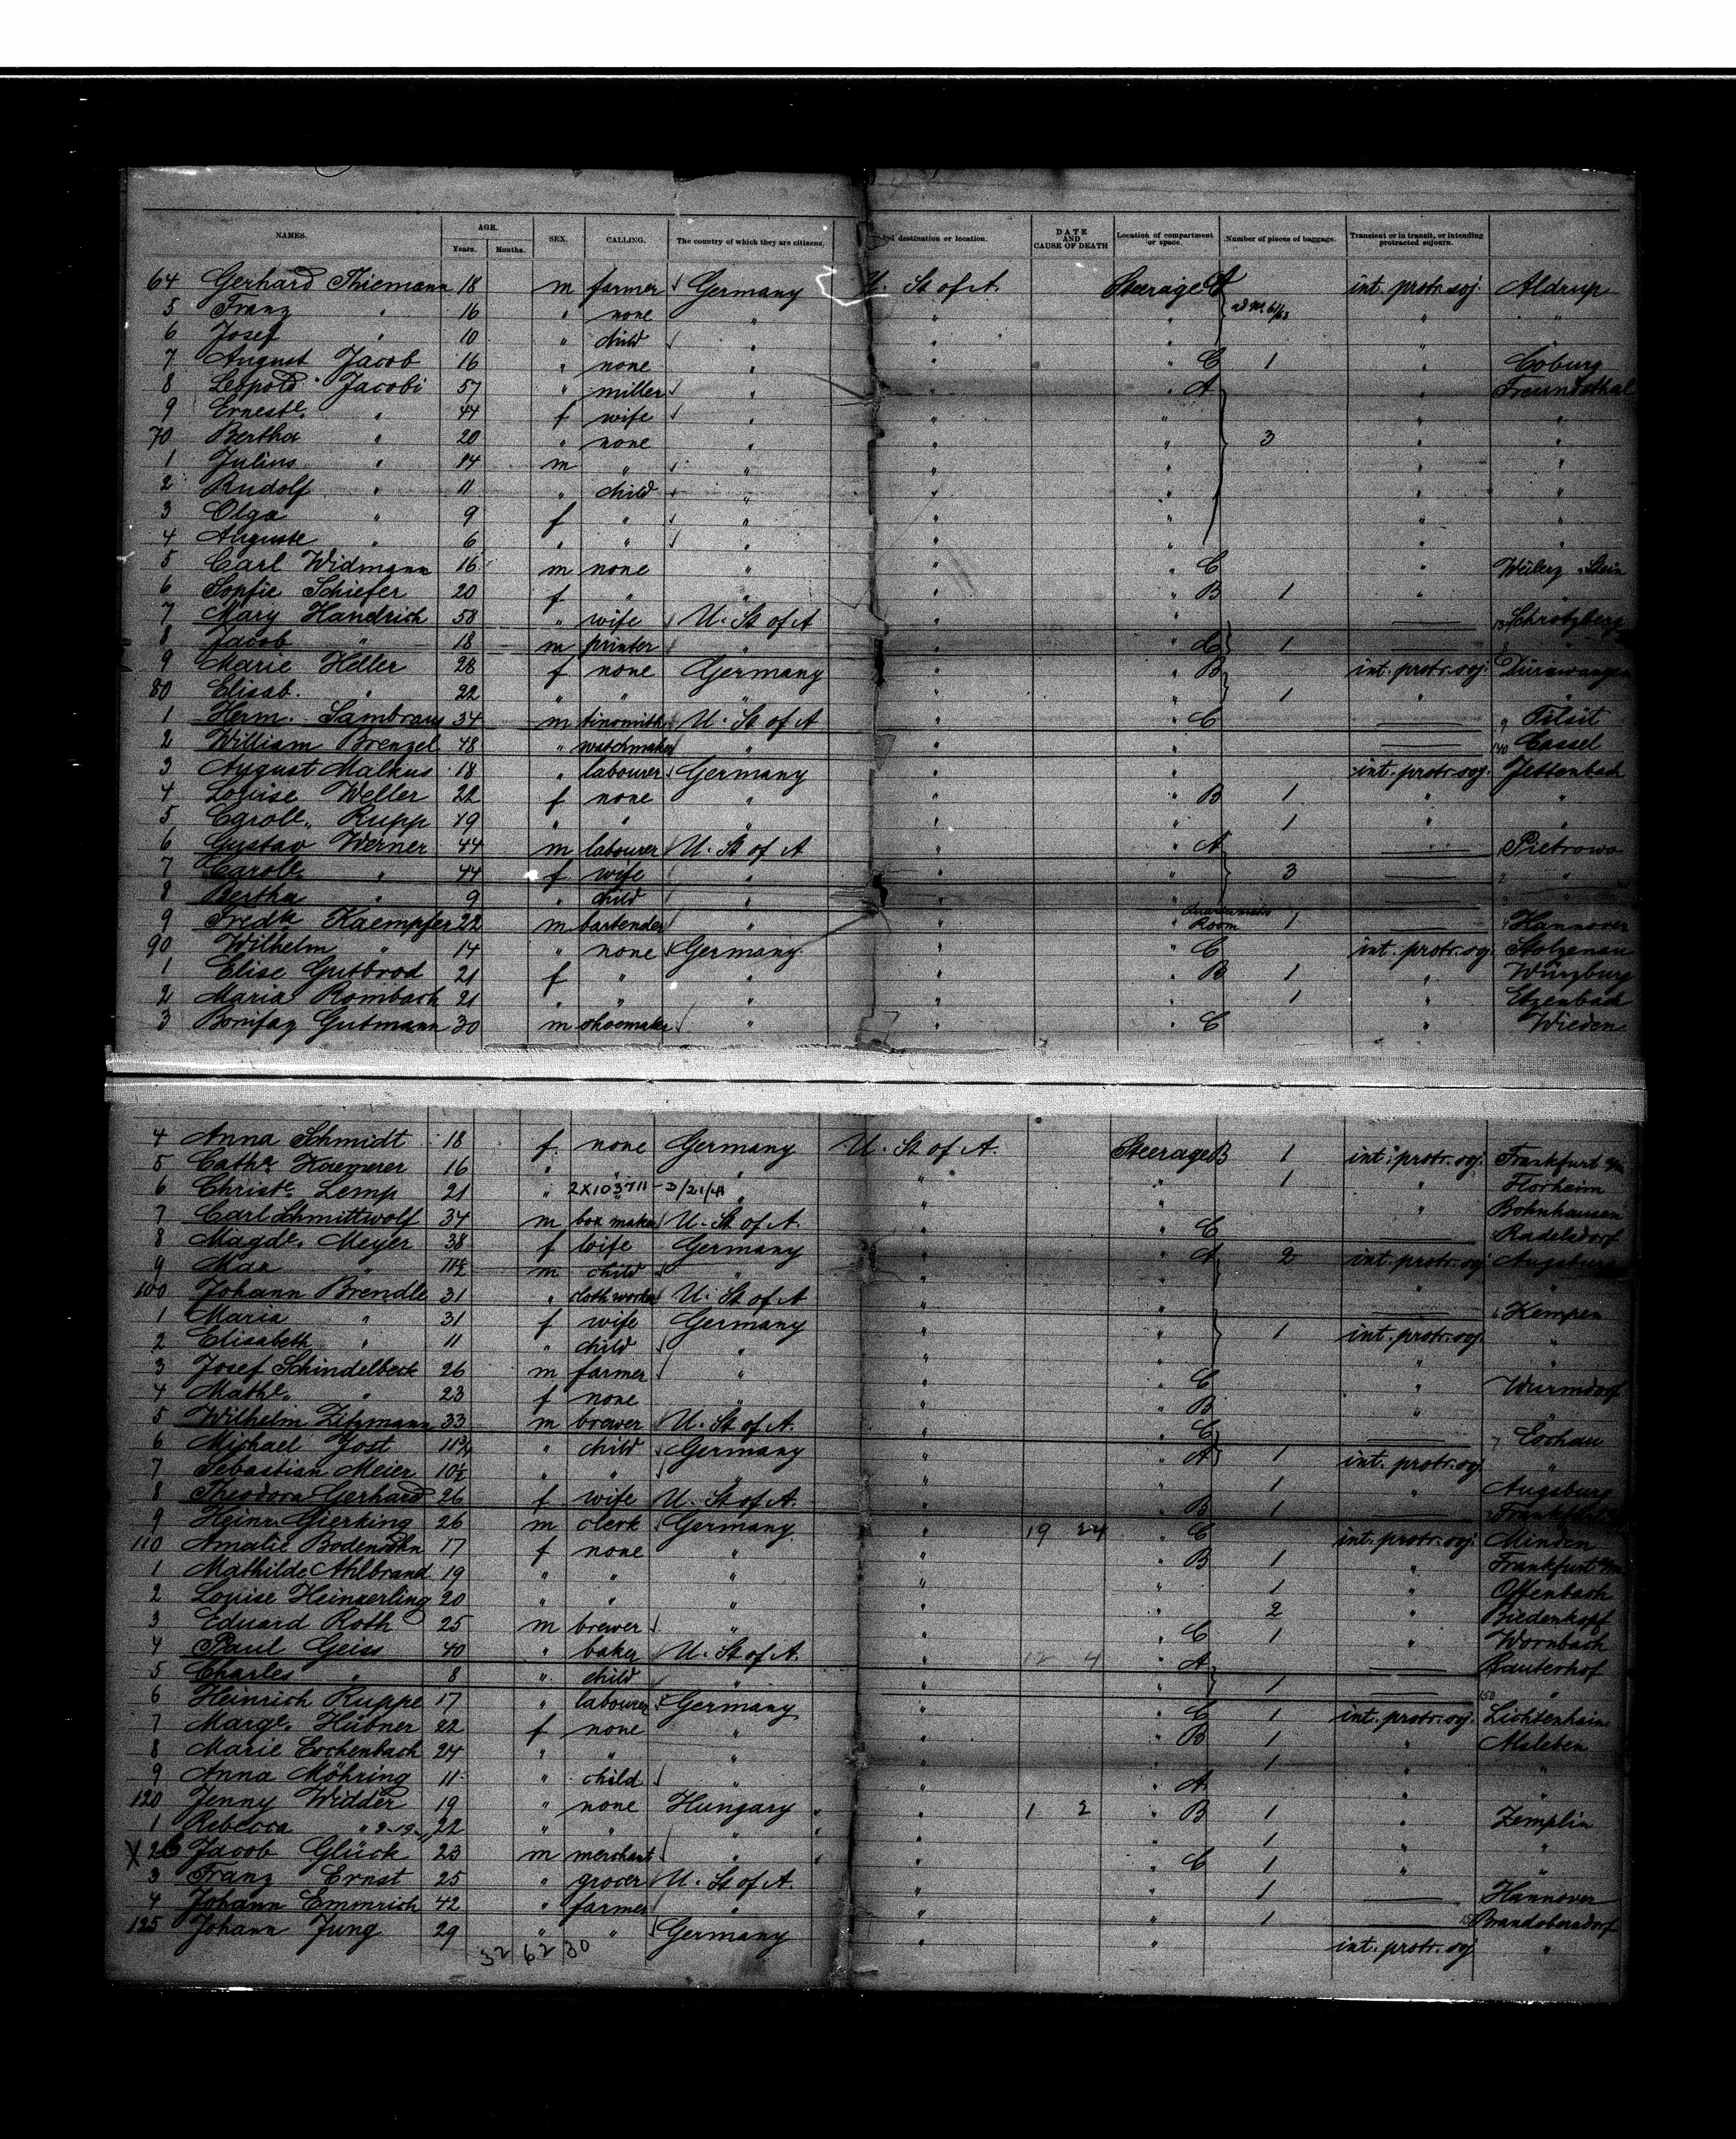 NAMES. AGE. SEX. CALLING. The country of which they are citizens. destination or location. DATE AND CAUSE OF DEATH Location of compartment or space. Number of pieces of baggage. Transient or in transit, or intending protracted sojourn.
Years. Months.
64 Gerhard Thiemann 18 m farmer Germany U. St of A. Steerage A int. protr. soj. Aldrup
5 Franz " 16 " none " " " " "
6 Josef " 10 " child " " "
7 August Jacob 16 " none " " " C 1 " Coburg
8 Leopold Jacobi 57 " miller " " " A " Freundsthal
9 Erneste. " 44 f wife " " " " "
70 Bertha " 20 " none " " " 3 " "
1 Julius " 14 m " " " " " "
2 Rudolf " 11 " child " " " " "
3 Olga " 9 f " " " " " "
4 Auguste " 6 " " " " " " "
5 Carl Widmann 16 m none " " " C "
6 Sopfie Schiefer 20 f " " " " B 1 " "
7 Mary Handrich 58 " wife U. St of A " " Schrotzberg
8 Jacob " 18 m printer " " " C 1
9 Marie Heller 28 f none Germany " " B int. protr. soj. Dürrwangen
80 Elisab. " 22 " " " " " 1 " "
1 Herm. Sambraus 34 m tinsmith U. St of A " " C " Tilsit
2 William Brenzel 48 " watchmaker " " " 140 Cassel
3 August Malkus 18 " labourer Germany " " int. protr. soj. Jettenbach
4 Louise Weller 22 f none " " " B 1 " "
5 Carole. Rupp 19 " " " " " 1 " "
6 Gustav Werner 44 m labourer U. St of A " " A Pietrowo
7 Carole. " 44 f wife " " " 3 2 "
8 Bertha " 9 " child " " "
9 Fredk Kaempfer 22 m bartender " " " Room 1 Hannover
90 Wilhelm " 14 " none Germany " " C int. protr. soj. Stolzenau
1 Elise Gutbrod 21 f " " " " B 1 " Würzburg
2 Maria Rombach 21 " " " " " 1 " Etzenbach
3 Bonifaz Gutmann 30 m shoemaker " " " C " Wieden
4 Anna Schmidt 18 f. none Germany U. St of A. Steerage B 1 int. protr. soj. Frankfurt a/m
5 Cathe. Kaemerer 16 " " " " " 1 " Florheim
6 Christe. Lemp 21 " 2X103711 - 3/21/41 " " " " Bohnhausen
7 Carl Schmittwolf 34 m box maker U. St of A. " " C Radelsdorf
8 Magde. Meyer 38 f wife Germany " " A 2 int. protr. soj. Augsburg
9 Max " 11½ m child " " " " "
100 Johann Brendle 31 " cloth worker U. St of A " " 6 Kempen
1 Maria " 31 f wife Germany " " 1 int. protr. soj. "
2 Elisabeth " 11 " child " " " " "
3 Josef Schindelbeck 26 m farmer " " " C " Wurmdorf
4 Mathe. " 23 f none " " " B " "
5 Wilhelm Zitzmann 33 m brewer U. St of A. " " C 7 Eschau
6 Michael Jost 11¾ " child Germany " " A 1 int. protr. soj. "
7 Sebastian Meier 10½ " " " " " 1 " Augsburg
8 Theodora Gerhard 26 f wife U. St of A. " " B 1
9 Heinr. Gierking 26 m clerk Germany " 19 24 " C int. protr. soj. Minden
110 Amalie 17 f none " " " B 1 " Frankfurt a/m
1 Mathilde Ahlbrand 19 " " " " " 1 " Offenbach
2 Louise Heinkerling 20 " " " " " 2 " Biedenkopf
3 Eduard Roth 25 m brewer " " " C 1 " Wornbach
4 Paul Geiss 40 " baker U. St of A. " 12 4 " A Rauterhof
5 Charles " 8 " child " " " 1 150 "
6 Heinrich Ruppe 17 " labourer Germany " " C 1 int. protr. soj. Lichtenhain
7 Marge. Hübner 22 f none " " " B 1 " Alsleben
8 Marie Eschenbach 24 " " " " " 1 " "
9 Anna Möhring 11 " child " " " A " "
120 Jenny Widder 19 " none Hungary " 1 2 " B 1 " Zemplin
1 Rebecca " 22 " " " " " 1 " "
X 2 Jacob Glück 23 m merchant " " " C 1 " "
3 Franz Ernst 25 " grocer U. St of A. " " 1 Hannover
4 Johann Emmrich 42 " farmer " " " 1 Brandobersdorf
125 Johann Jung 29 " " Germany " " int. protr. soj. "
32 62 30